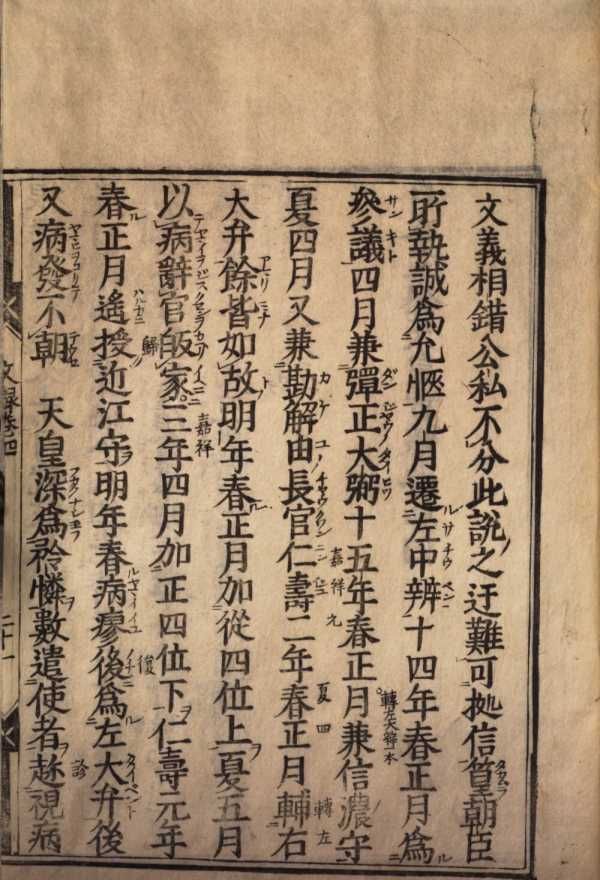 文義相錯公私不分此說之迂難可拠信篁朝臣
所執誠爲允愜九月遷左中辨十四年春正月爲
參議四月兼彈正大弼十五年春正月兼信濃守
夏四月又兼勘解由長官仁壽二年春正月輔右
大弁餘皆如故明年春正月加從四位上夏五月
以病辭官皈家三年四月加正四位下仁壽元年
春正月遙授近江守明年春病廖後爲左大弁後
又病發不朝　天皇深爲矜憐數遣使者趂視病